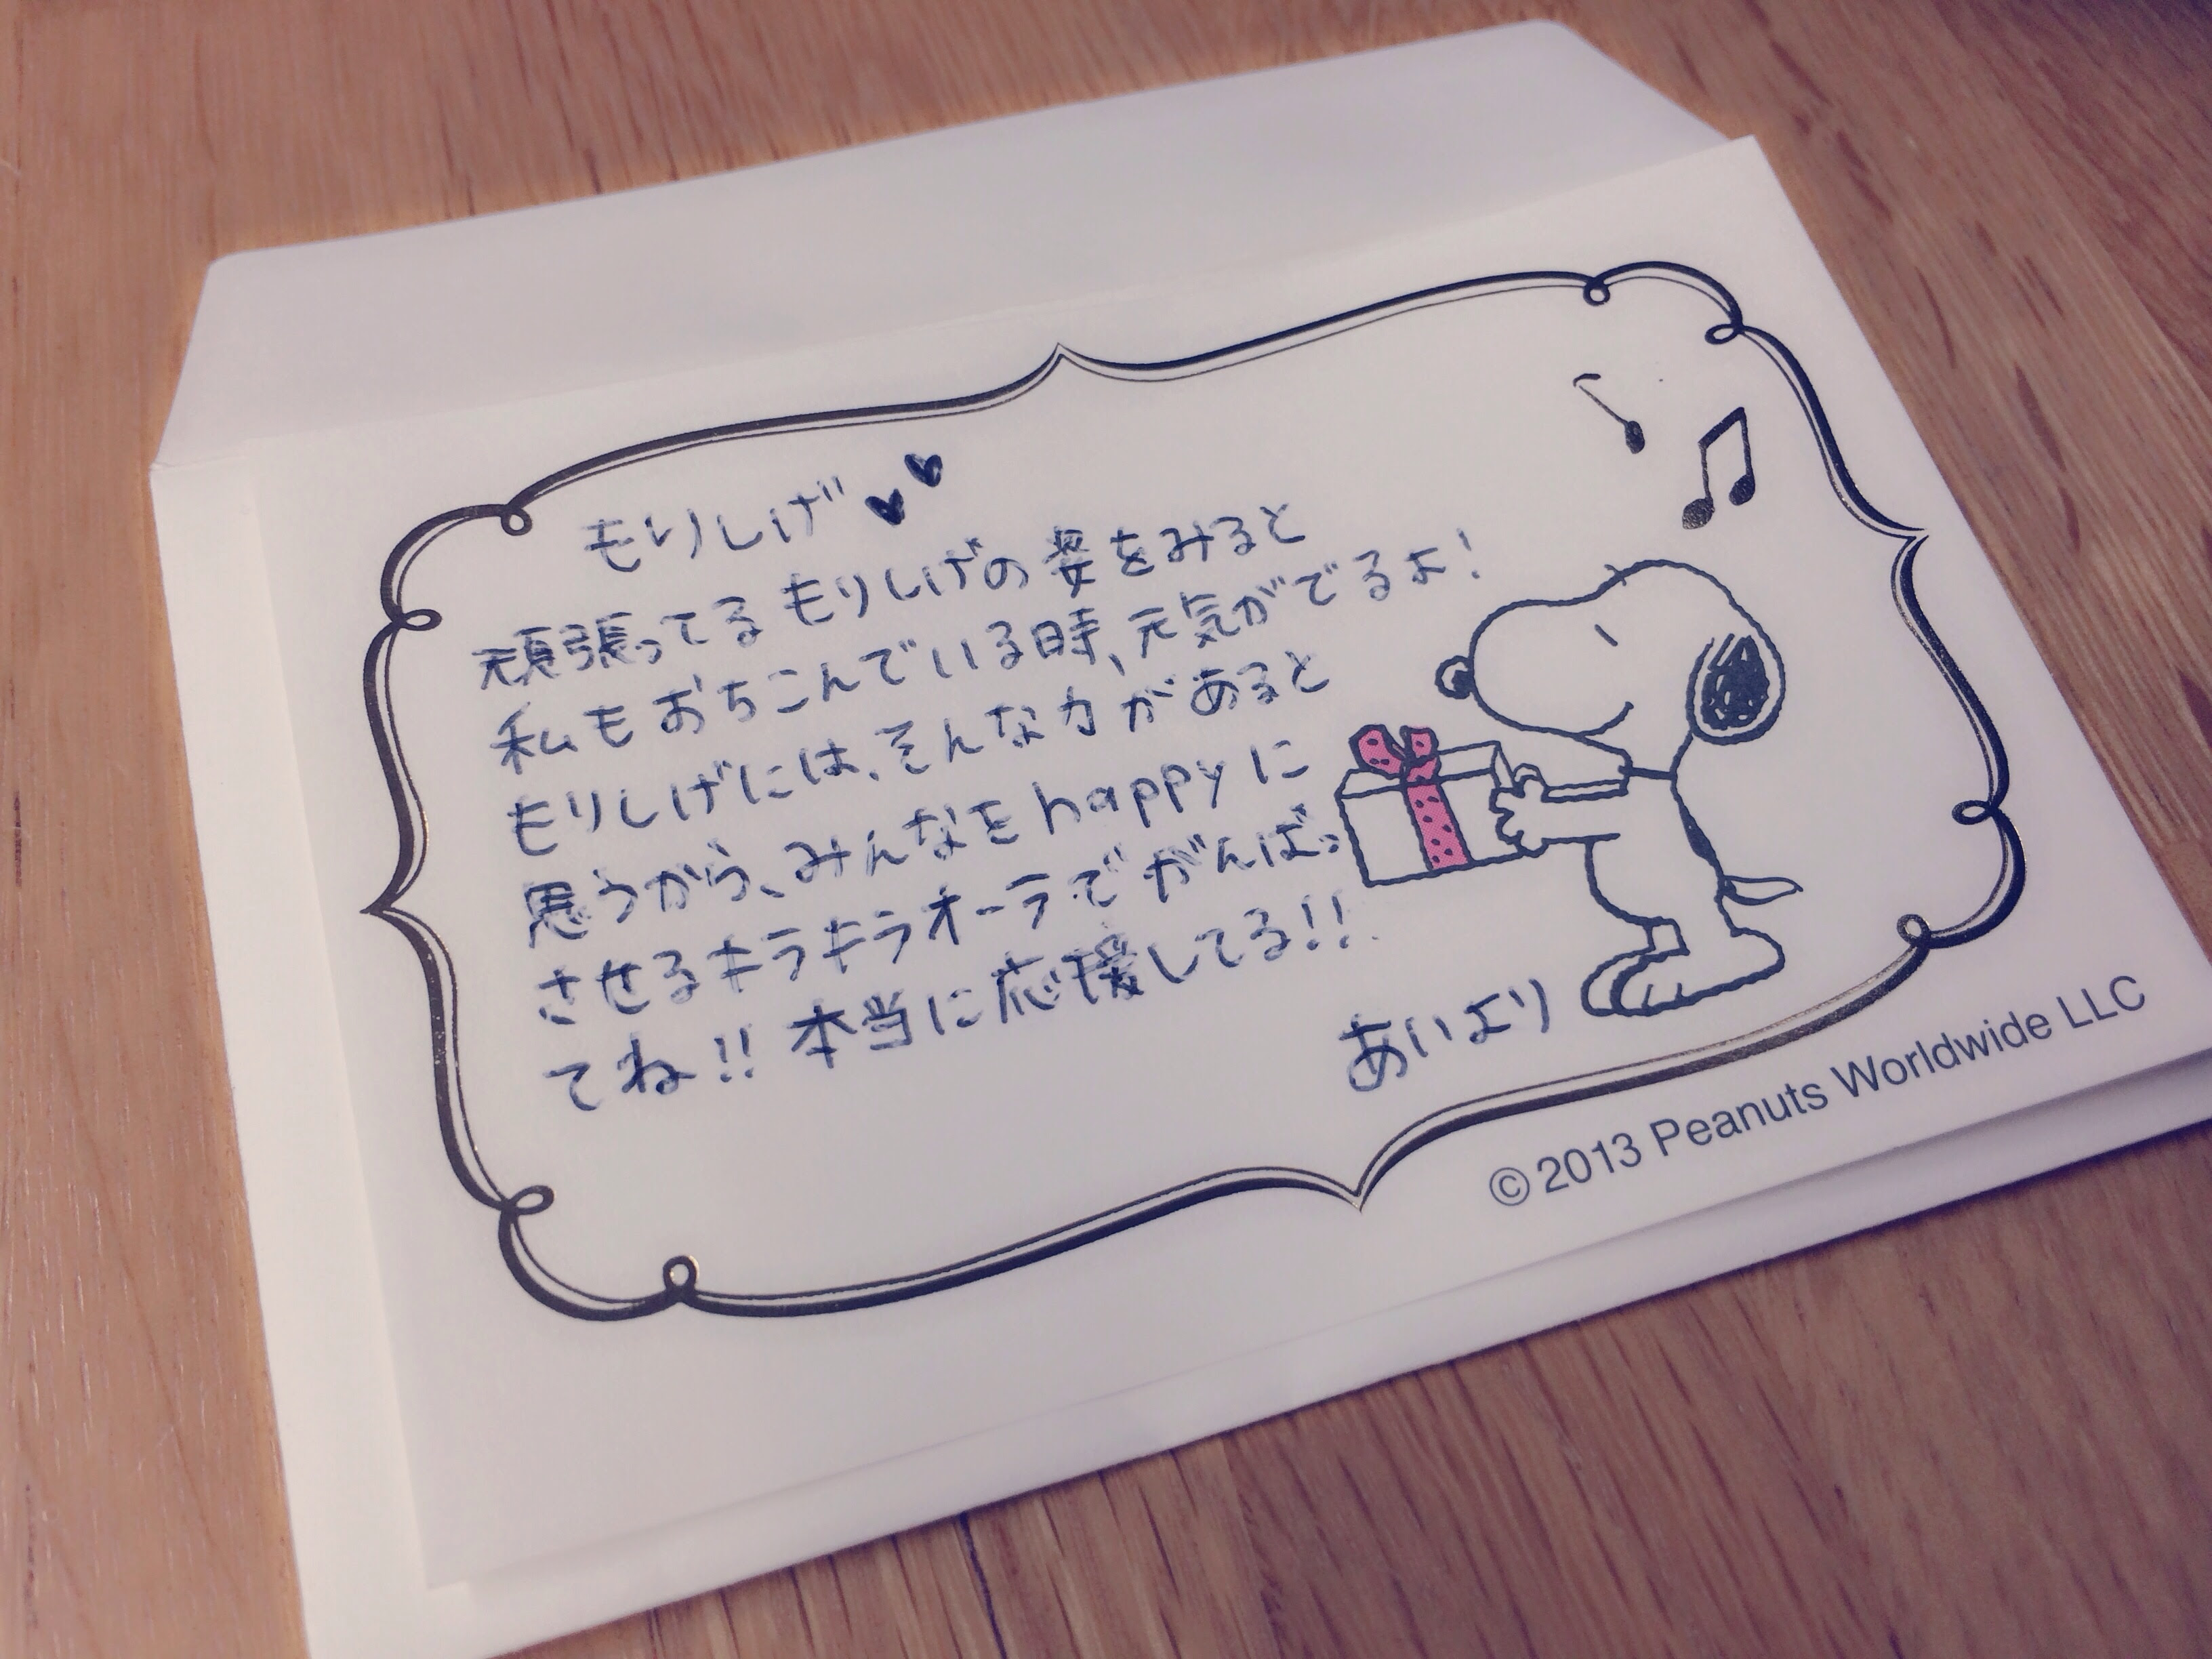 もりしげ♥♥
頑張ってるもりしげの姿をみると
私もおちこんでいる時、元気がでるよ!
もりしげには、そんな力があると
思うから、みんなをhappyに
させるキラキラオーラでがんばっ
てね!!本当に応援してる!!
あいより
© 2013 Peanuts Worldwide LLC